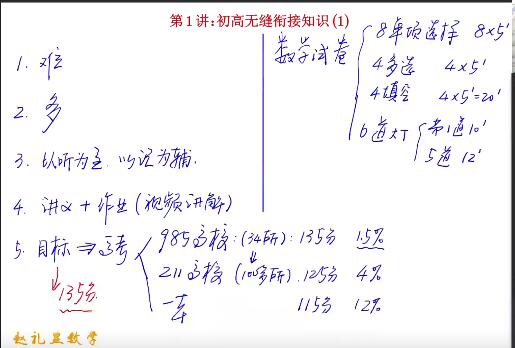 第1讲:初高无缝衔接知识(1)
1. 难
2. 多
3. 以听为主,以记为辅.
4. 讲义+作业(视频讲解)
5. 目标⇒高考
↓
135分
985高校:(34所):135分 1.5%
211高校(100多所).125分 4%
一本 115分 12%
数学试卷
8单项选择 8×5'
4多选 4×5'
4填空 4×5'=20'
6道大T
第1道10'
5道 12'
赵礼显数学